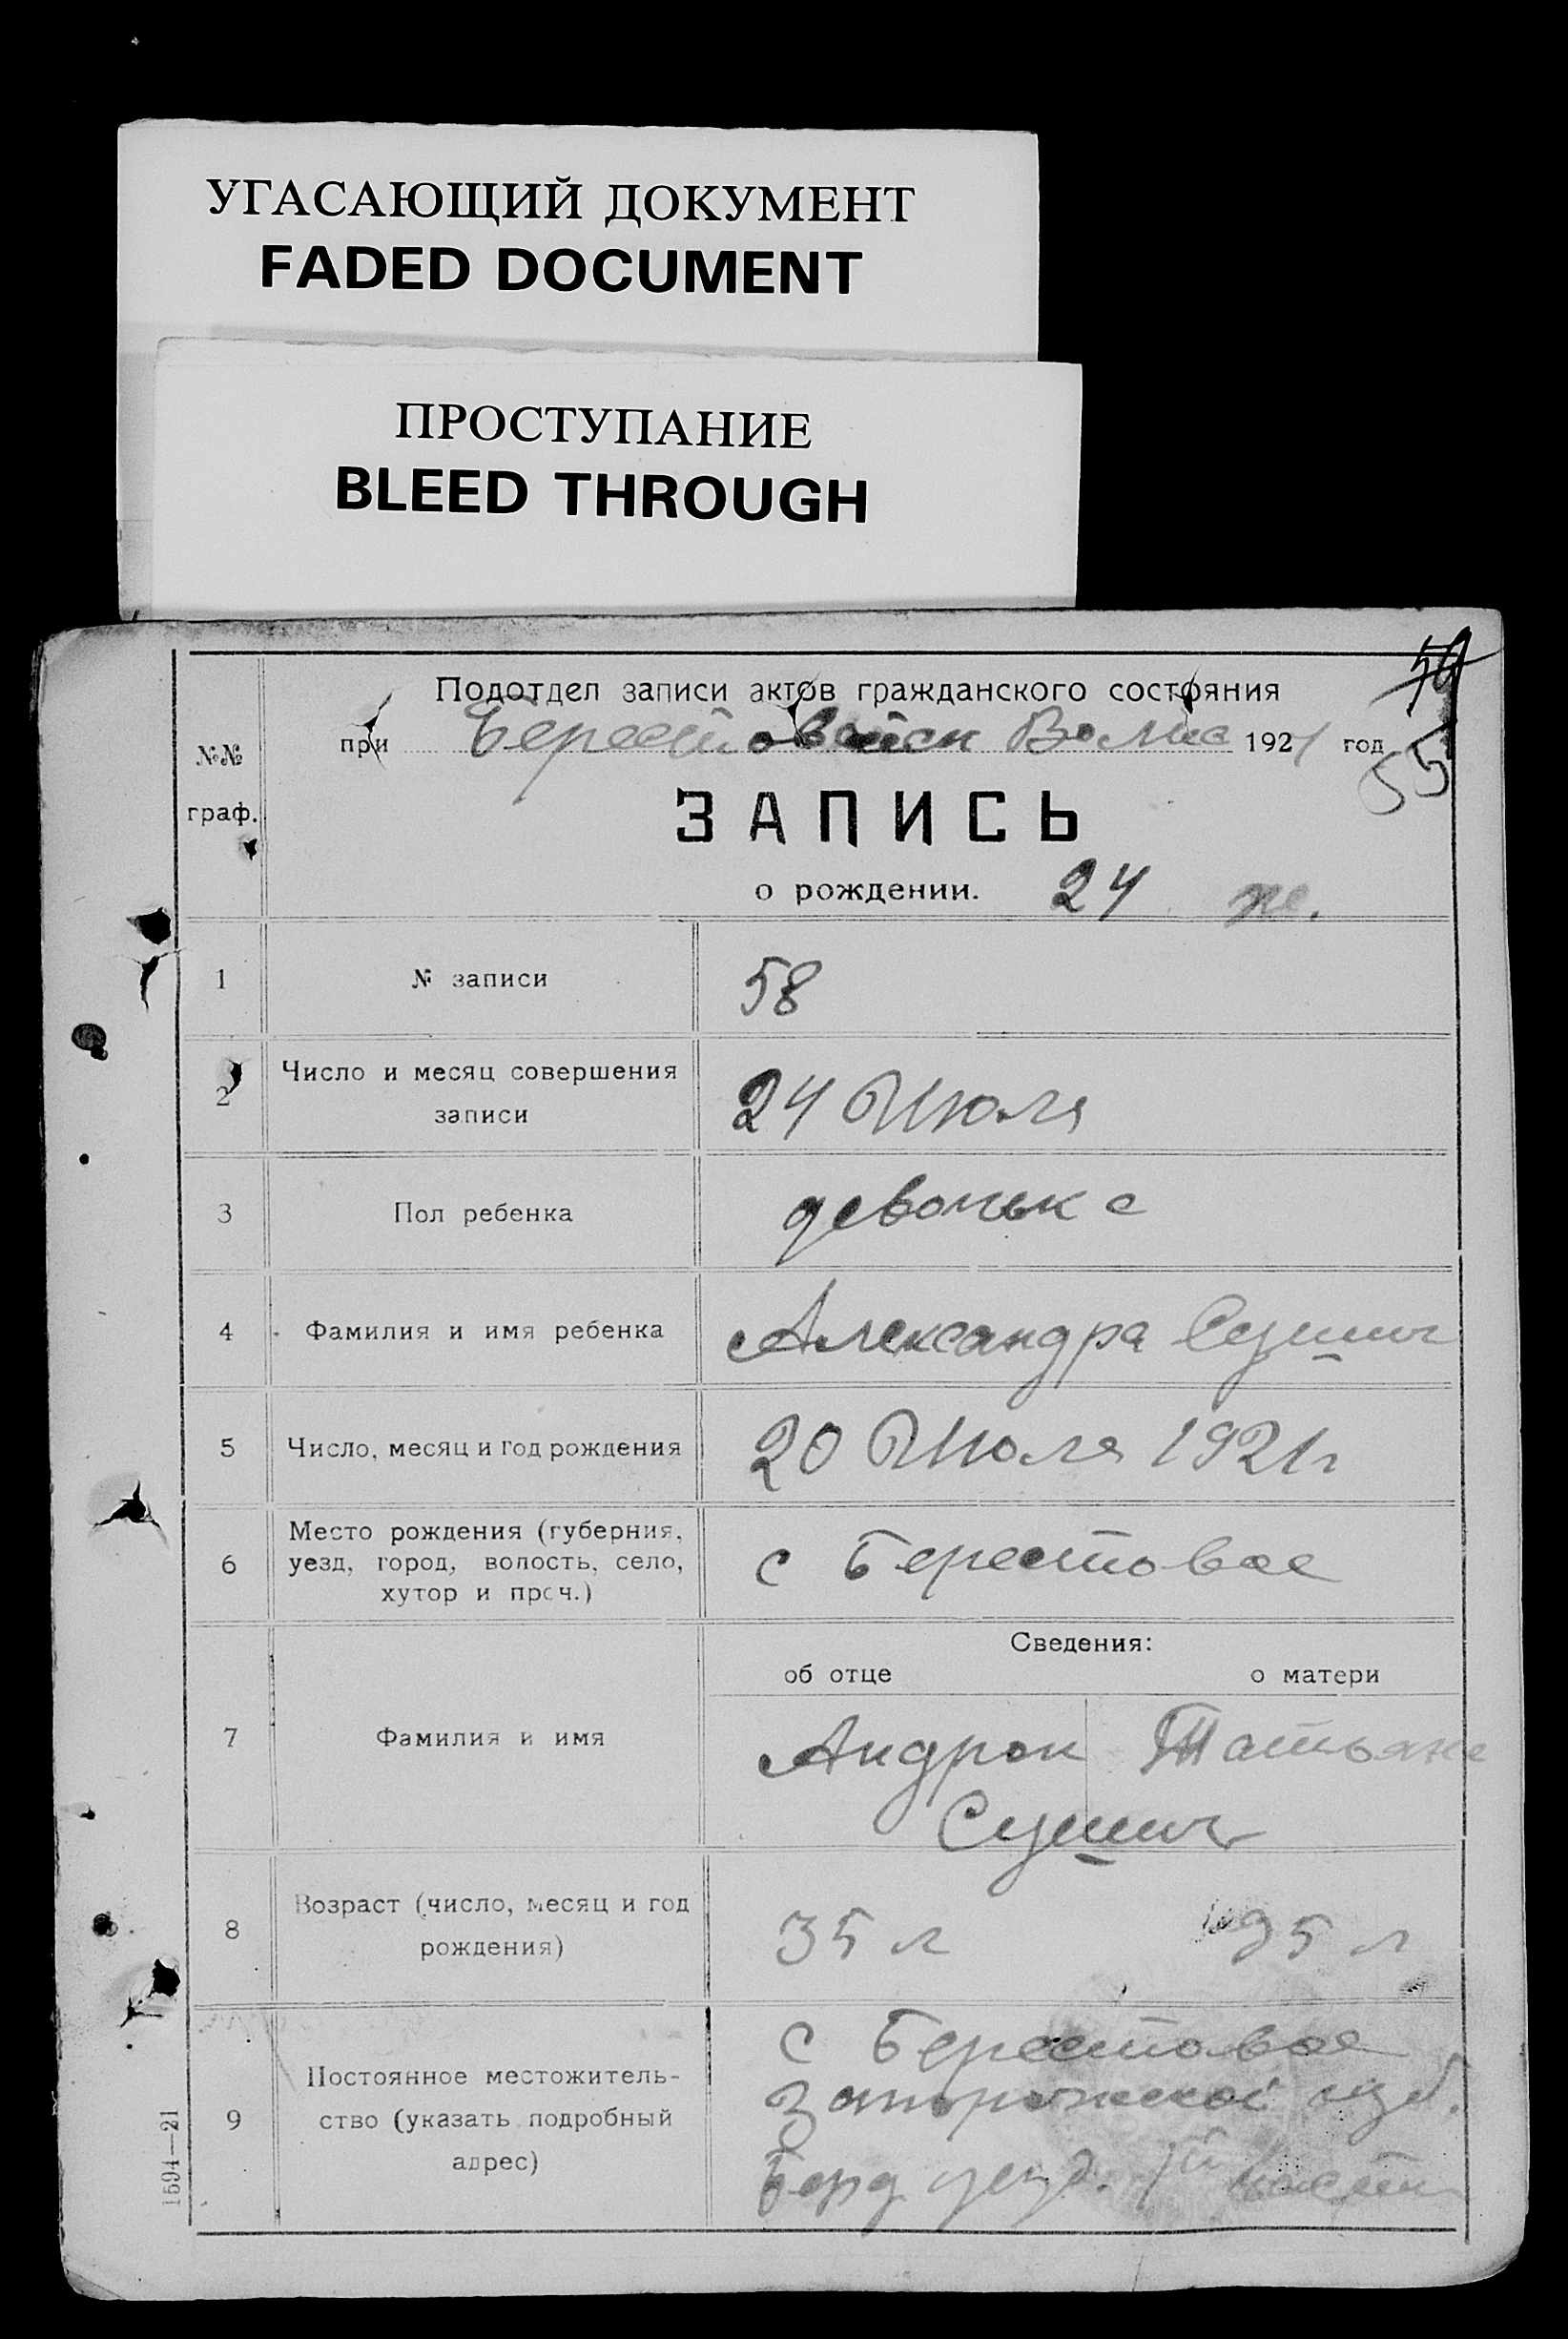 УГАСАЮЩИЙ ДОКУМЕНТ
FADED DOCUMENT
ПРОСТУПАНИЕ
BLEED THROUGH
54
Подотдел записи актов гражданского состояния
при Берестовск Волис 1921 год
55
№№
граф.
ЗАПИСЬ
о рождении. 24 же.
1 № записи 58
2 Число и месяц совершения
записи 24 Июля
3 Пол ребенка девочька
4 Фамилия и имя ребенка Александра Сушич
5 Число, месяц и год рождения 20 Июля 1921г
6 Место рождения (губерния,
уезд, город, волость, село,
хутор и проч.) с Берестовое
Сведения:
об отце о матери
7 Фамилия и имя Андрон Татьяна
Сушич
8 Возраст (число, месяц и год
рождения) 35 л 35 л
9 Постоянное местожитель-
ство (указать подробный
адрес) с Берестовое
Запорожской губ.
Берд уезд.
1594—21